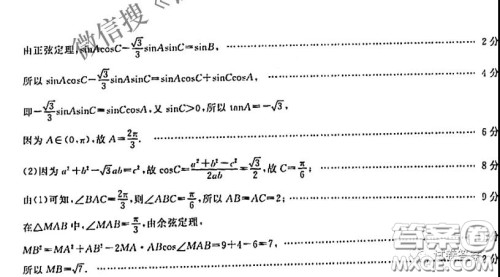 微信搜《
由正弦定理,sinAcosC-√3/3 sinAsinC=sinB, 2分
所以 sinAcosC-√3/3 sinAsinC=sinAcosC+sinCcosA, 4分
即-√3/3 sinAsinC=sinCcosA,又 sinC>0,所以 tanA=-√3,
因为 A∈(0,π),故 A=2π/3. 6分
(2)因为 a²+b²-√3ab=c²,故 cosC=(a²+b²-c²)/2ab=√3/2,故 C=π/6; 8分
由(1)可知,∠BAC=2π/3,则∠ABC=π/6,所以 AB=AC=2; 9分
在△MAB 中,∠MAB=π/3,由余弦定理,
MB²=MA²+AB²-2MA·ABcos∠MAB=9+4-6=7,
所以 MB=√7. 2分